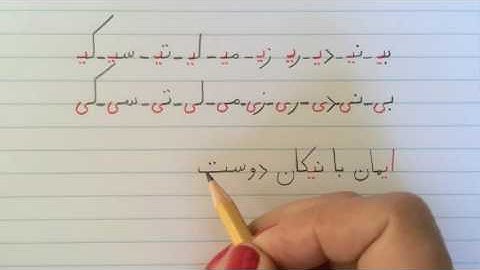 بیـ - نیـ - دیـ - ریـ - زیـ - میـ - لیـ - تیـ - سیـ - کیـ
بی - نی - دی - ری - زی - می - لی - تی - سی - کی
ایمان با نیکان دوست